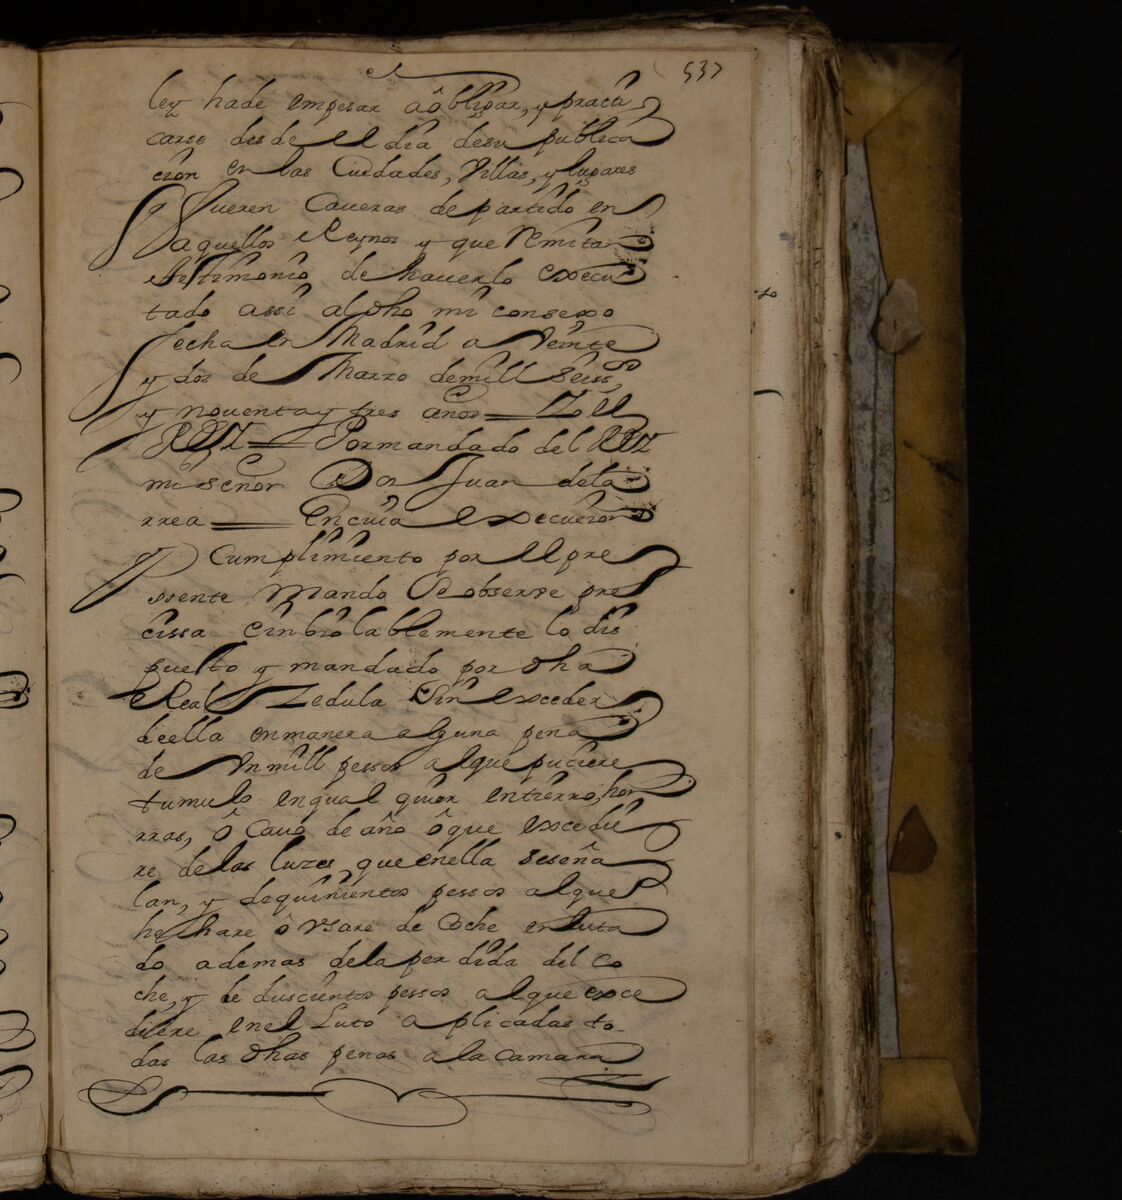 537
ley hade empesar âôbligar, y practi
carse desde el dia desu publica
cion en las Ciudades, Villas, y lugares
q fueren Caveras de partido en
aquellos Reynos y que remitan
testimonio de haverlo execu
tado assi al dho mi consexo
fecha en Madrid a Veinte
y dos de Marzo demill Seiss.os
y noventa y tres años = Yo el
REY = Pormandado del REY
mi señor Don Juan dela
rrea = En cuia execucion
y Cumplimiento por el pre
ssente Mando Se observe pre
cissa einbiolablemente lo dis
puesto y mandado por dha
Real Zedula Sin exceder
deella enmanera alguna pena
de Un mill pessos alque puciere
tumulo enqual quier entierro, hon
rras, ô Cavo de año ôque excedie
re delas luzes, que enella seseña
lan, y dequinientos pessos alque
hechare ô Vsare de Coche enluta
do ademas dela perdida del co
che, y de duscientos pessos alque exce
diere enel Luto aplicadas to
das las dhas penas ala camara